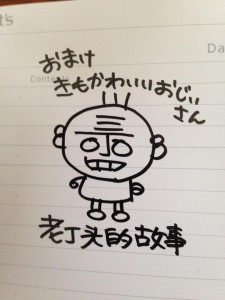 おまけ
きもかわいいおじい
さん
Da
Contents
老丁头的故事